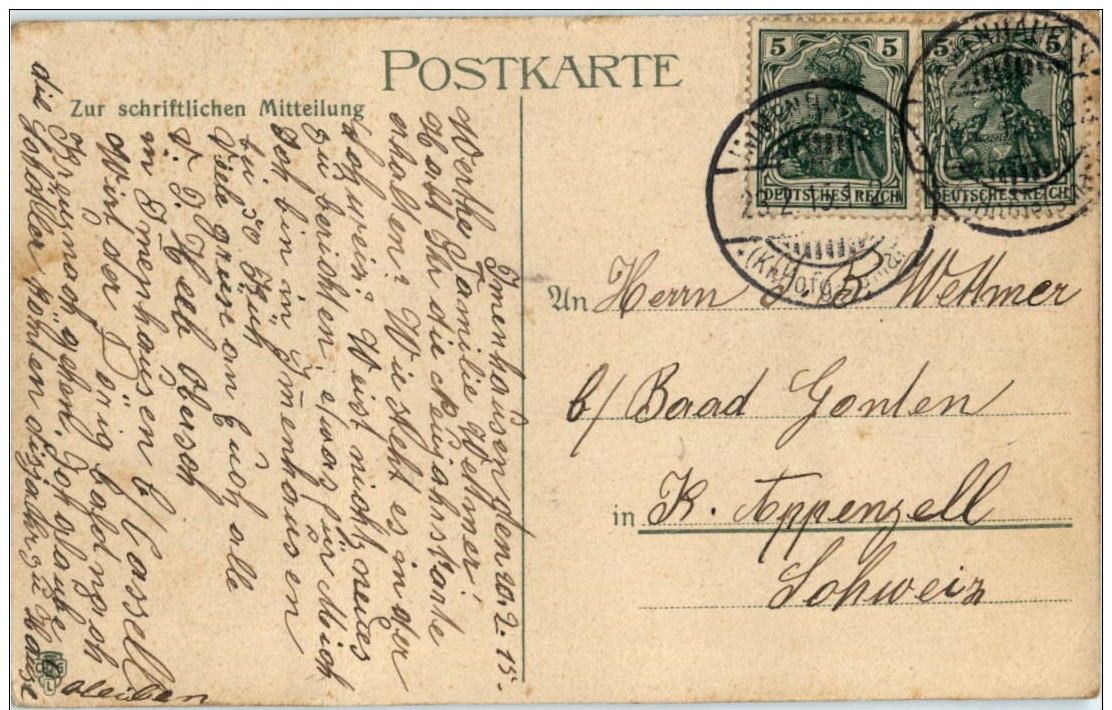 POSTKARTE
Zur schriftlichen Mitteilung
Imenhausen den 20.2.15.
Werthe Familie Wettmer!
Habt Ihr die Neujahrskarte
erhalten? Wie steht es in der
Schweiz? Weist nichts neues
zu berichten etwas für Mich
Ich bin in Imenhausen
bei 50 Küh
Viele grüse an Euch alle
v. J. Keel
in Imenhausen b/ Cassell
Wirt der bald nach
Kreuznach gehen. Ich glaube
die Schöttler
bleiben
5 5
DEUTSCHES REICH
5
DEUTSCHES REICH
An Herrn J. B. Wettmer
b/ Baad Gonten
in K. Appenzell
Schweiz